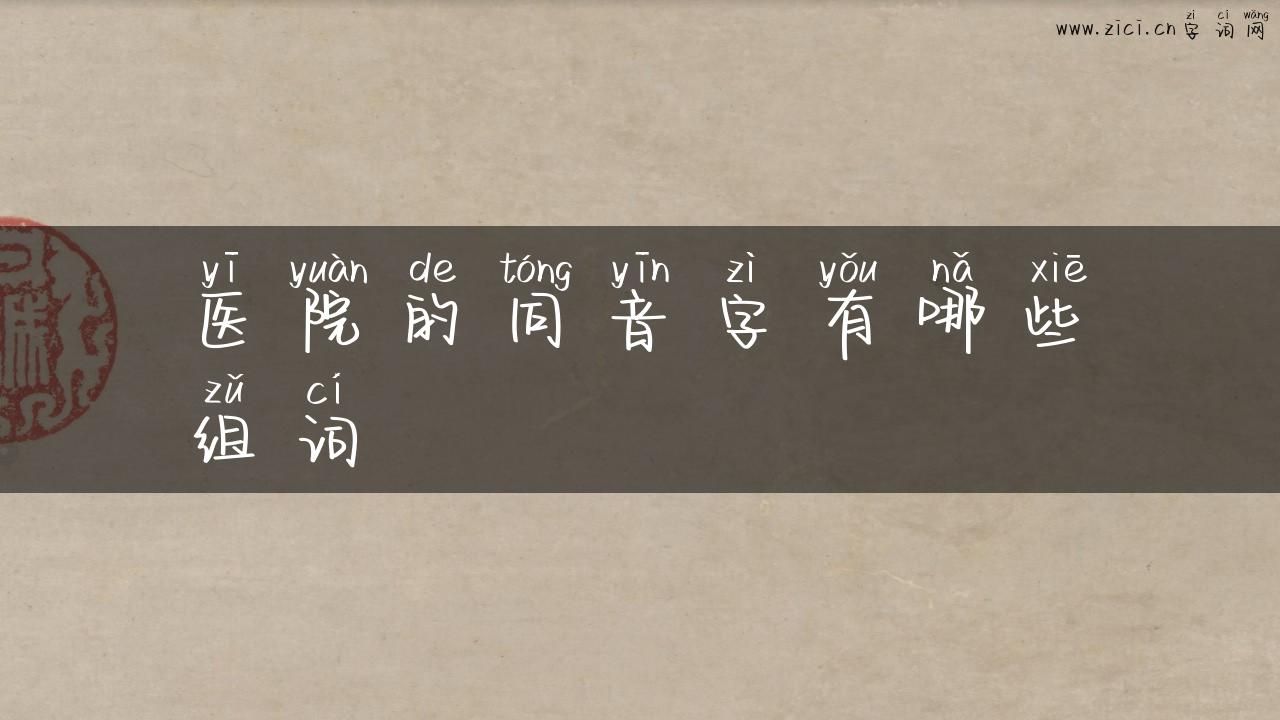 zì cí wǎng
www.zici.cn 字词网
yī yuàn de tóng yīn zì yǒu nǎ xiē
医院的同音字有哪些
zǔ cí
组词